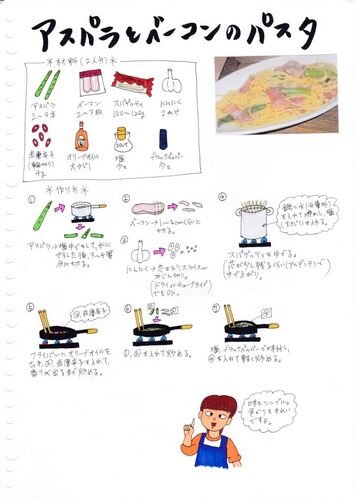 アスパラとベーコンのパスタ
*材料(2人分)*
アスパラ
2〜3本
ベーコン
2〜3枚
スパゲッティ
100〜120g
にんにく
2かけ
赤唐辛子
(輪切り)
少々
オリーブオイル
大さじ1
SALT
塩
少々
ブラックペッパー
少々
*作り方*
①
アスパラは塩ゆでをして、水に
さらした後、3〜4等
分に切る。
②
ベーコンは1〜2cm位に
切る。
③
にんにくは芯をとりスライスか
みじん切り。
(ドライやチューブタイプ
でもOK。)
④
鍋に水(分量外)
を入れて沸かし、塩
を入れる。
スパゲッティをゆでる。
(芯が少し残るくらい(アルデンテ)で
ゆで上がり。
⑤
③、赤唐辛子
フライパンにオリーブオイルを
入れ、③、赤唐辛子を入れて、
香りが出るまで炒める。
⑥
①、②を入れて炒める。
⑦
④
塩、ブラックペッパーで味付けし、
④を入れて軽く炒める。
味もシンプル。
色どりもきれい
ですよ。